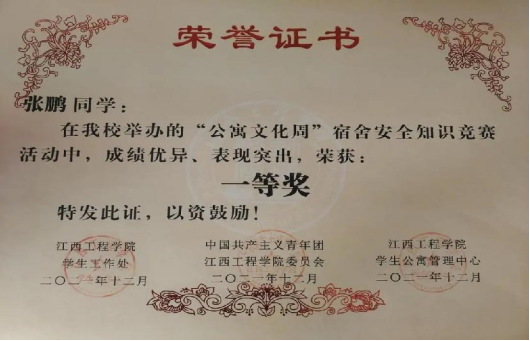 荣誉证书
张鹏同学：
在我校举办的“公寓文化周”宿舍安全知识竞赛
活动中，成绩优异、表现突出，荣获：
一等奖
特发此证，以资鼓励！
江西工程学院
学生工作处
二〇二一年十二月
中国共产主义青年团
江西工程学院委员会
二〇二一年十二月
江西工程学院
学生公寓管理中心
二〇二一年十二月